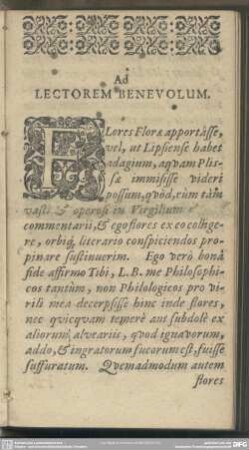 Ad
LECTOREM BENEVOLUM.
FLores Floræ apportâsse,
vel, ut Lipsiense habet
adagium, aqvam Plis-
sæ immisisse videri
possum, qvòd, cùm tàm
vasti & operosi in Virgilium
commentarii, & ego flores ex eo collige-
re, orbiq; literario conspiciendos pro-
pinare sustinuerim. Ego verò bonâ
fide affirmo Tibi, L.B. me Philosophi-
cos tantùm, non Philologicos pro vi-
rili mea decerpsisse hinc inde flores,
nec qvicqvam temerè aut subdolè ex
aliorum alvearüs, qvod ignavorum,
addo, & ingratorum fucorum est, fuisse
suffuratum. Qvemadmodum autem
flores